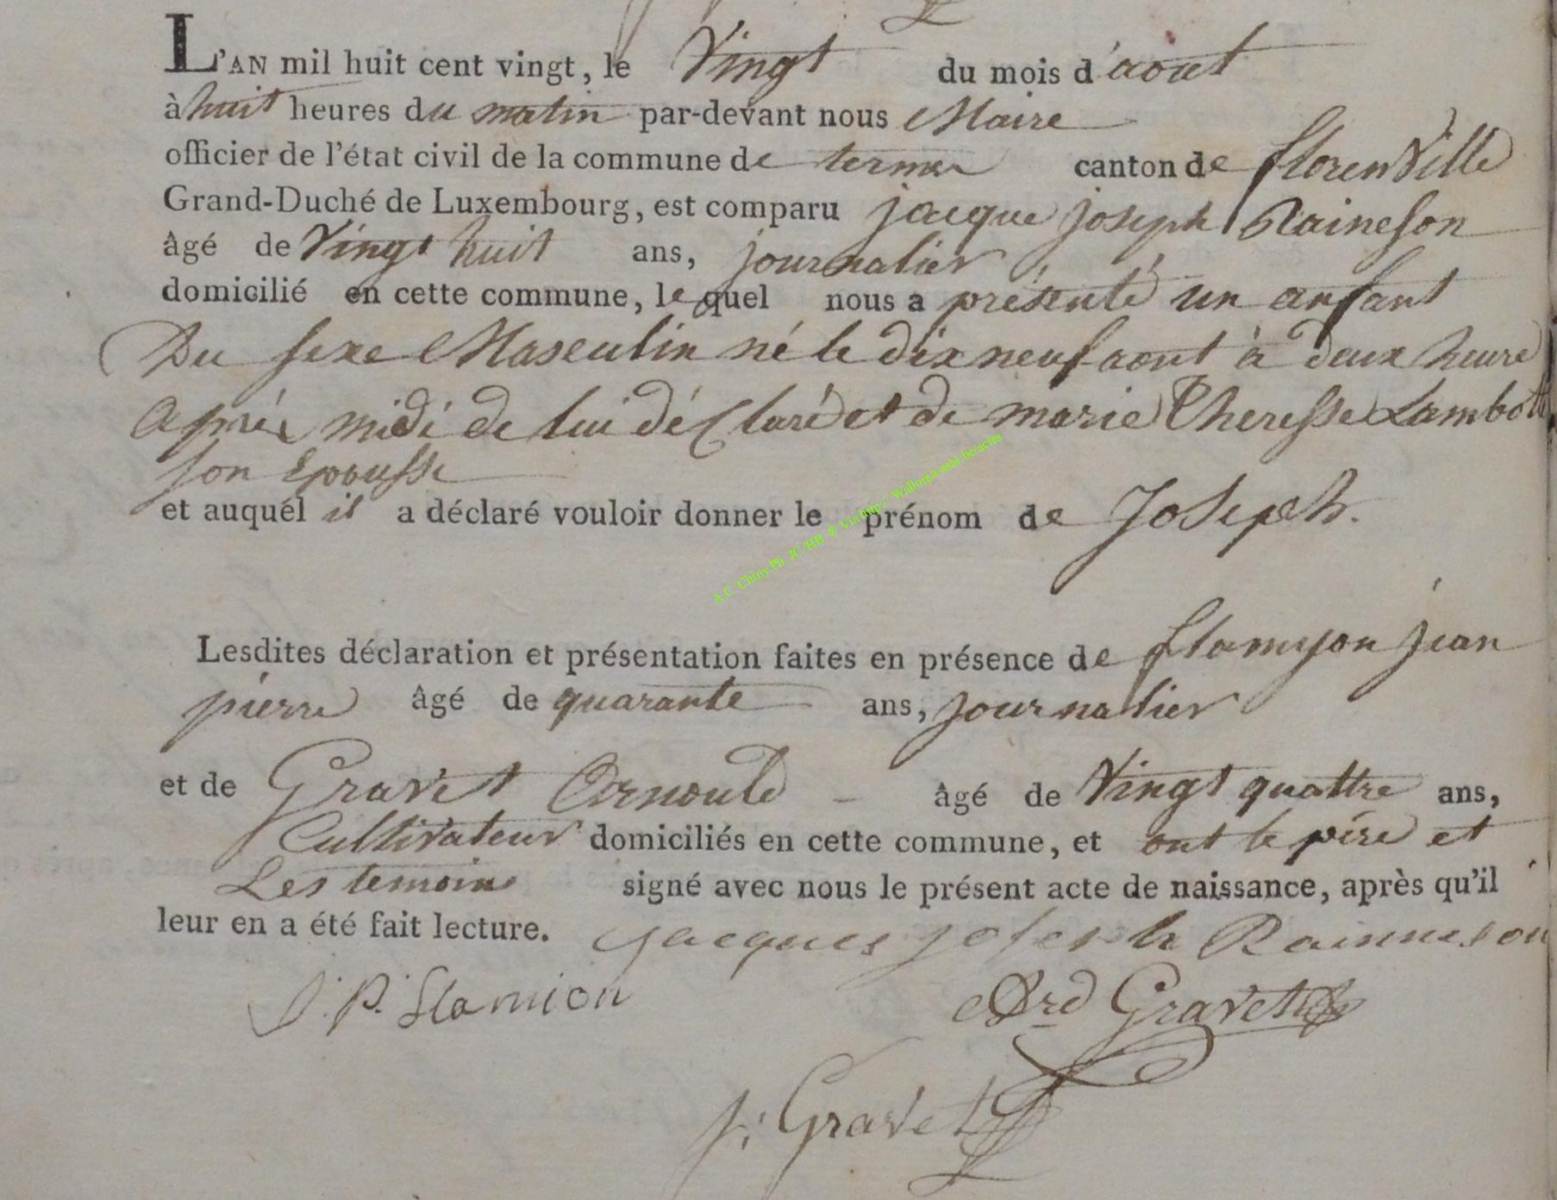 L'AN mil huit cent vingt, le Vingt du mois d'aout
à huit heures du matin par-devant nous Maire
officier de l'état civil de la commune de termes canton de florenVille
Grand-Duché de Luxembourg, est comparu jacque joseph Raineson
âgé de Vingt huit ans, journalier
domicilié en cette commune, lequel nous a présenté un anfant
Du sexe Masculin né le dix neuf aout à deux heure
Après midi de lui déClaré et de marie Theresse Lambott
son Epousse
et auquel il a déclaré vouloir donner le prénom de Joseph.
Lesdites déclaration et présentation faites en présence de slamyon jean
pierre âgé de quarante ans, journalier
et de Gravet Arnould – âgé de Vingt quattre ans,
Cultivateur domiciliés en cette commune, et ont le père et
Les temoins signé avec nous le présent acte de naissance, après qu'il
leur en a été fait lecture. jacques joseph Rainneson
J. P. Slamion Ard Gravet
j: Gravet